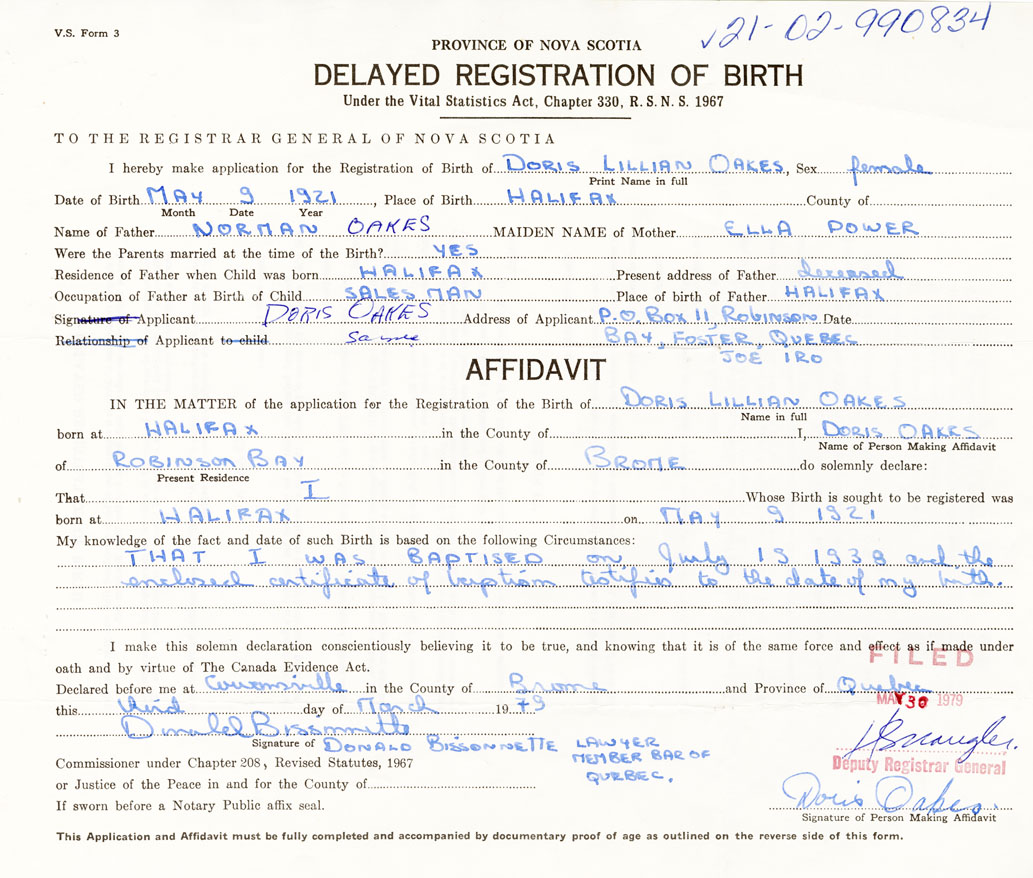 V.S. Form 3
√21-02-990834
PROVINCE OF NOVA SCOTIA
DELAYED REGISTRATION OF BIRTH
Under the Vital Statistics Act, Chapter 330, R. S. N. S. 1967
TO THE REGISTRAR GENERAL OF NOVA SCOTIA
I hereby make application for the Registration of Birth of DORIS LILLIAN OAKES, Sex female
Print Name in full
Date of Birth MAY 9 1921, Place of Birth HALIFAX County of
Month Date Year
Name of Father NORMAN OAKES MAIDEN NAME of Mother ELLA POWER
Were the Parents married at the time of the Birth? YES
Residence of Father when Child was born HALIFAX Present address of Father deceased
Occupation of Father at Birth of Child SALES MAN Place of birth of Father HALIFAX
Signature of Applicant DORIS OAKES Address of Applicant P.O. BOX 11, ROBINSON Date
Relationship of Applicant to child Same BAY, FOSTER, QUEBEC
JOE 1RO
AFFIDAVIT
IN THE MATTER of the application for the Registration of the Birth of DORIS LILLIAN OAKES
Name in full
born at HALIFAX in the County of I, DORIS OAKES
Name of Person Making Affidavit
of ROBINSON BAY in the County of BROME do solemnly declare:
Present Residence
That I Whose Birth is sought to be registered was
born at HALIFAX on MAY 9 1921
My knowledge of the fact and date of such Birth is based on the following Circumstances:
THAT I WAS BAPTISED on July 13 1938 and the
enclosed certificate of baptism testifies to the date of my birth.
I make this solemn declaration conscientiously believing it to be true, and knowing that it is of the same force and effect as if made under
oath and by virtue of The Canada Evidence Act.
FILED
Declared before me at Cowansville in the County of Brome and Province of Quebec
MAY 30 1979
this third day of March 19 79
Donald Bissonnette
Signature of DONALD BISSONNETTE LAWYER
MEMBER BAR OF
QUEBEC.
Commissioner under Chapter 208, Revised Statutes, 1967
Deputy Registrar General
or Justice of the Peace in and for the County of
If sworn before a Notary Public affix seal.
Doris Oakes
Signature of Person Making Affidavit
This Application and Affidavit must be fully completed and accompanied by documentary proof of age as outlined on the reverse side of this form.